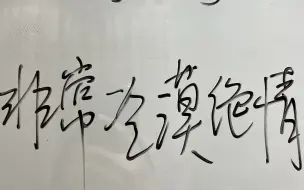 非常冷漠绝情